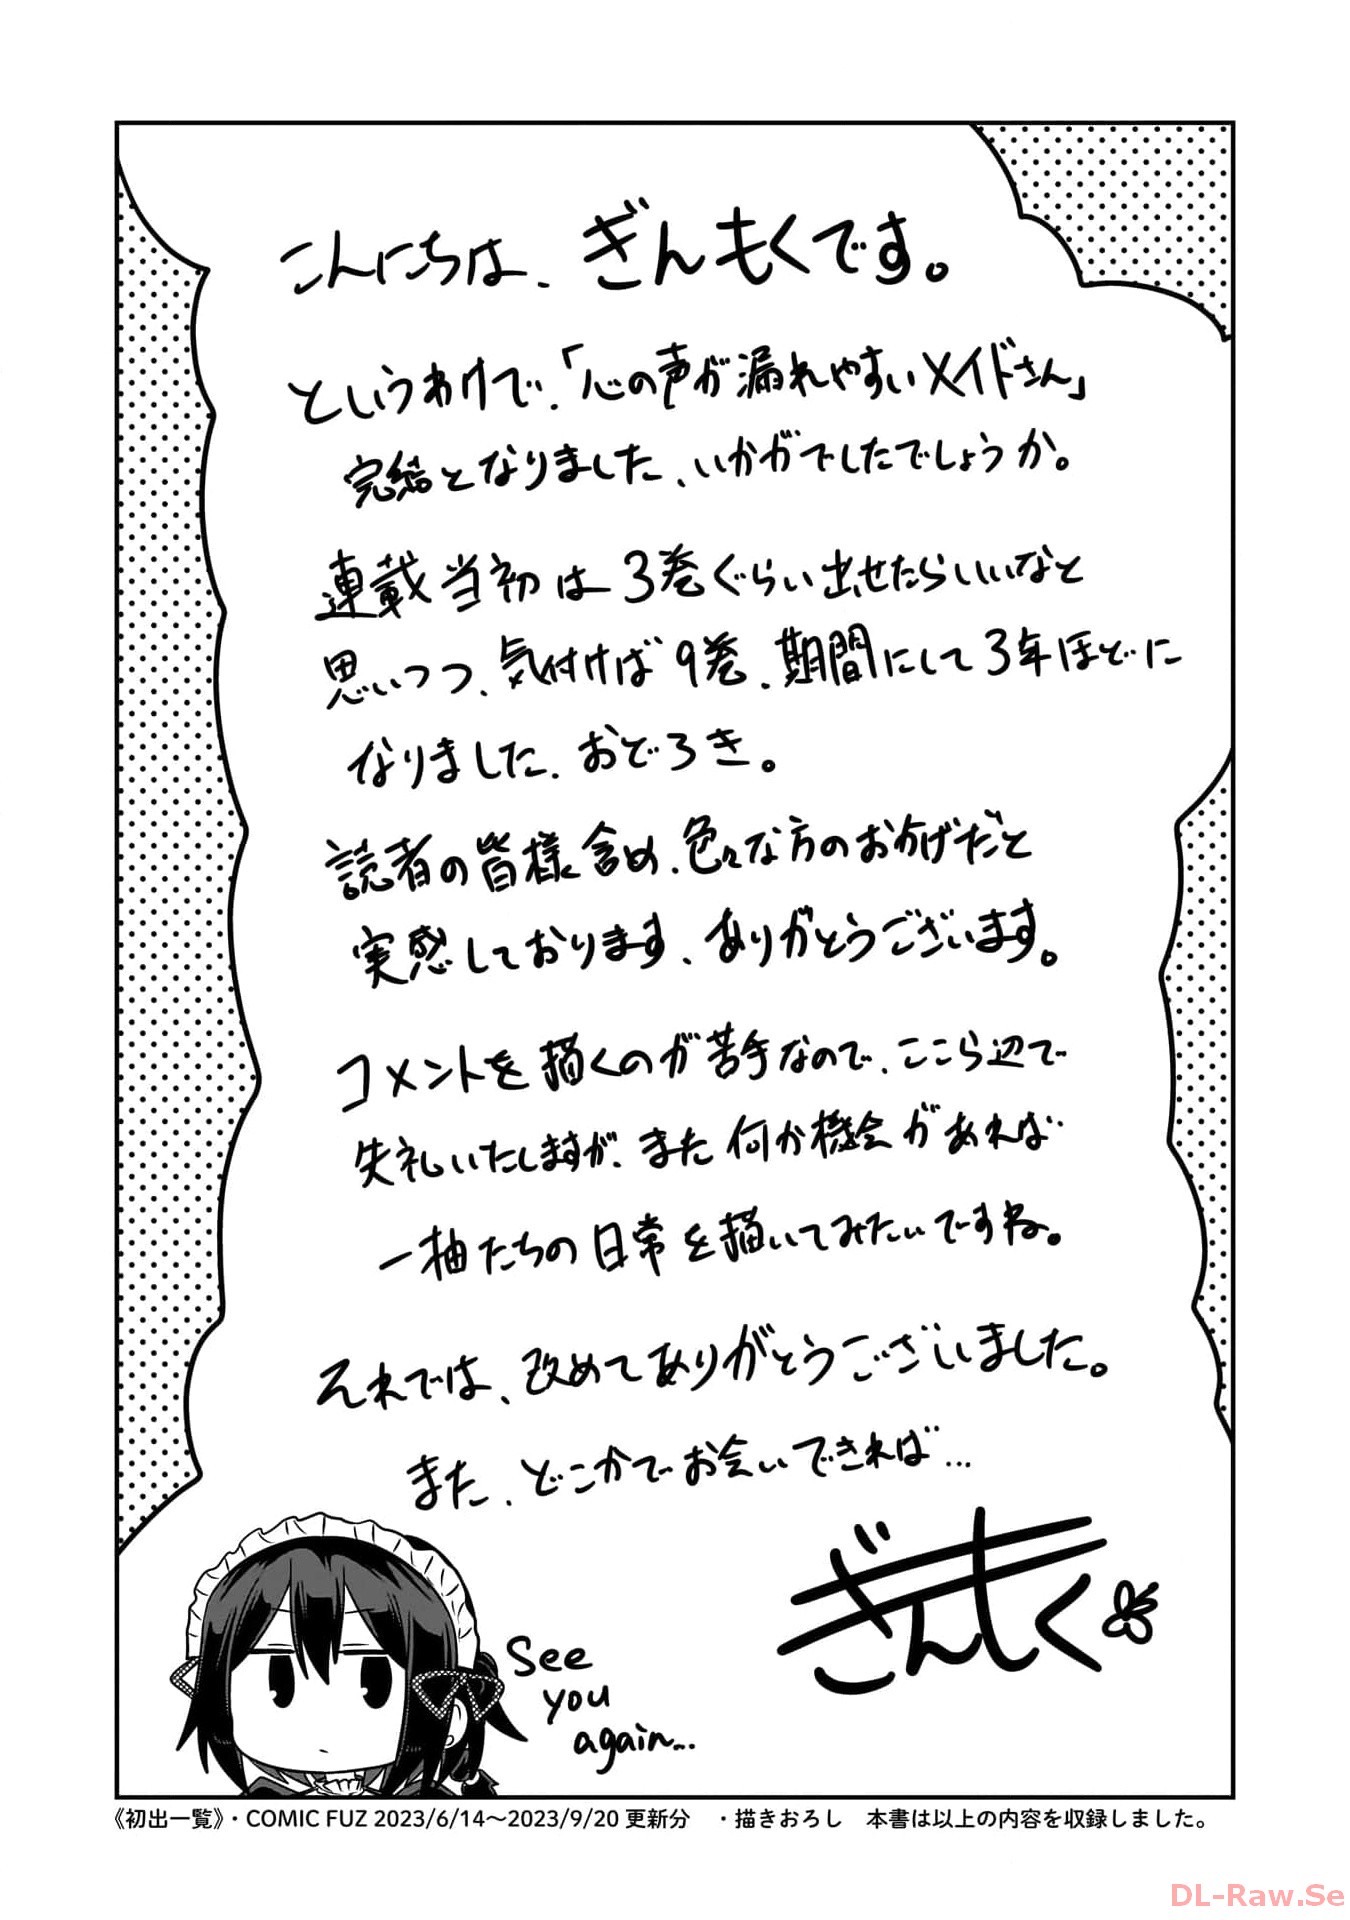 こんにちは、ぎんもくです。
というわけで、「心の声が漏れやすいメイドさん」
完結となりました、いかがでしたでしょうか。
連載当初は3巻ぐらい出せたらいいなと
思いつつ、気付けば9巻、期間にして3年ほどに
なりました、おどろき。
読者の皆様含め、色々な方のおかげだと
実感しております、ありがとうございます。
コメントを描くのが苦手なので、ここら辺で
失礼いたしますが、また何か機会があれば
一柚たちの日常を描いてみたいですね。
それでは、改めてありがとうございました。
また、どこかでお会いできれば…
ぎんもく
See
you
again...
《初出一覧》・COMIC FUZ 2023/6/14〜2023/9/20 更新分　・描きおろし　本書は以上の内容を収録しました。
DL-Raw.Se